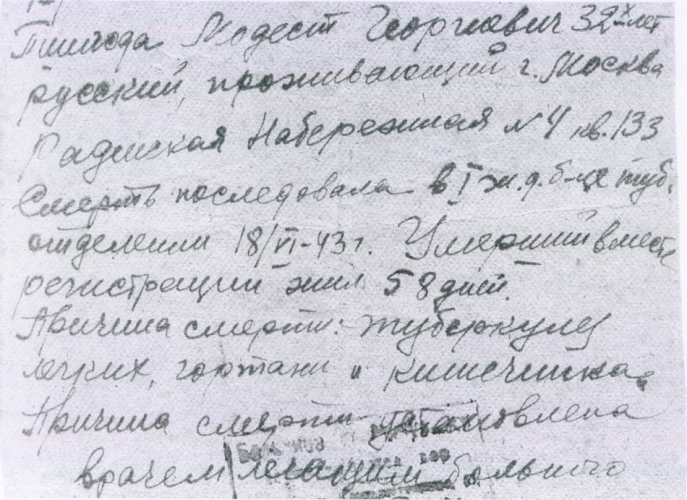 Модест Георгиевич 32х лет
русский, проживающий г. Москва
Набережная №4 кв. 133
Смерть последовала в I ж.д. б-це туб.
отделении 18/VI-43 г. Умерший в месте
регистрации жил 58 дней.
Причина смерти: туберкулез
легких, гортани и кишечника.
Причина смерти установлена
врачем лечащим больного